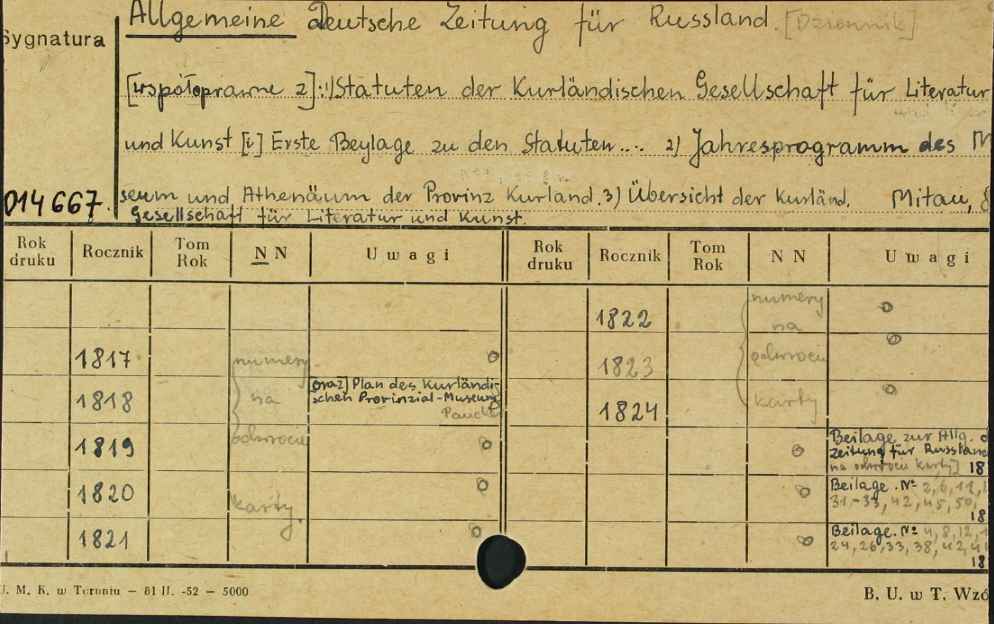 Allgemeine Deutsche Zeitung für Russland. [Dziennik]
Sygnatura
[współoprawne 2]: 1) Statuten der Kurländischen Gesellschaft für Literatur
und Kunst [i] Erste Beylage zu den Statuten... 2) Jahresprogramm des M
014667. seum und Athenäum der Provinz Kurland. 3) Übersicht der Kurländ. Mitau,
Gesellschaft für Literatur und Kunst.
Rok druku Rocznik Tom Rok N N Uwagi Rok druku Rocznik Tom Rok N N Uwagi
1822 numery
na
1817 numery 1823 odwrocie
1818 na [oraz] Plan des Kurländi-
schen Provinzial-Museums
1824 karty
1819 odwrocie Beilage zur Allg.
Zeitung für Russland
na odwrociu karty] 18
1820 karty. Beilage. Nº 2, 6, 11,
31-33, 42, 45, 50,
18
1821 Beilage. Nº 4, 8, 12,
24, 26, 33, 38, 42,
18
U. M. K. w Toruniu — 81 II. -52 — 5000 B. U. w T. Wzó